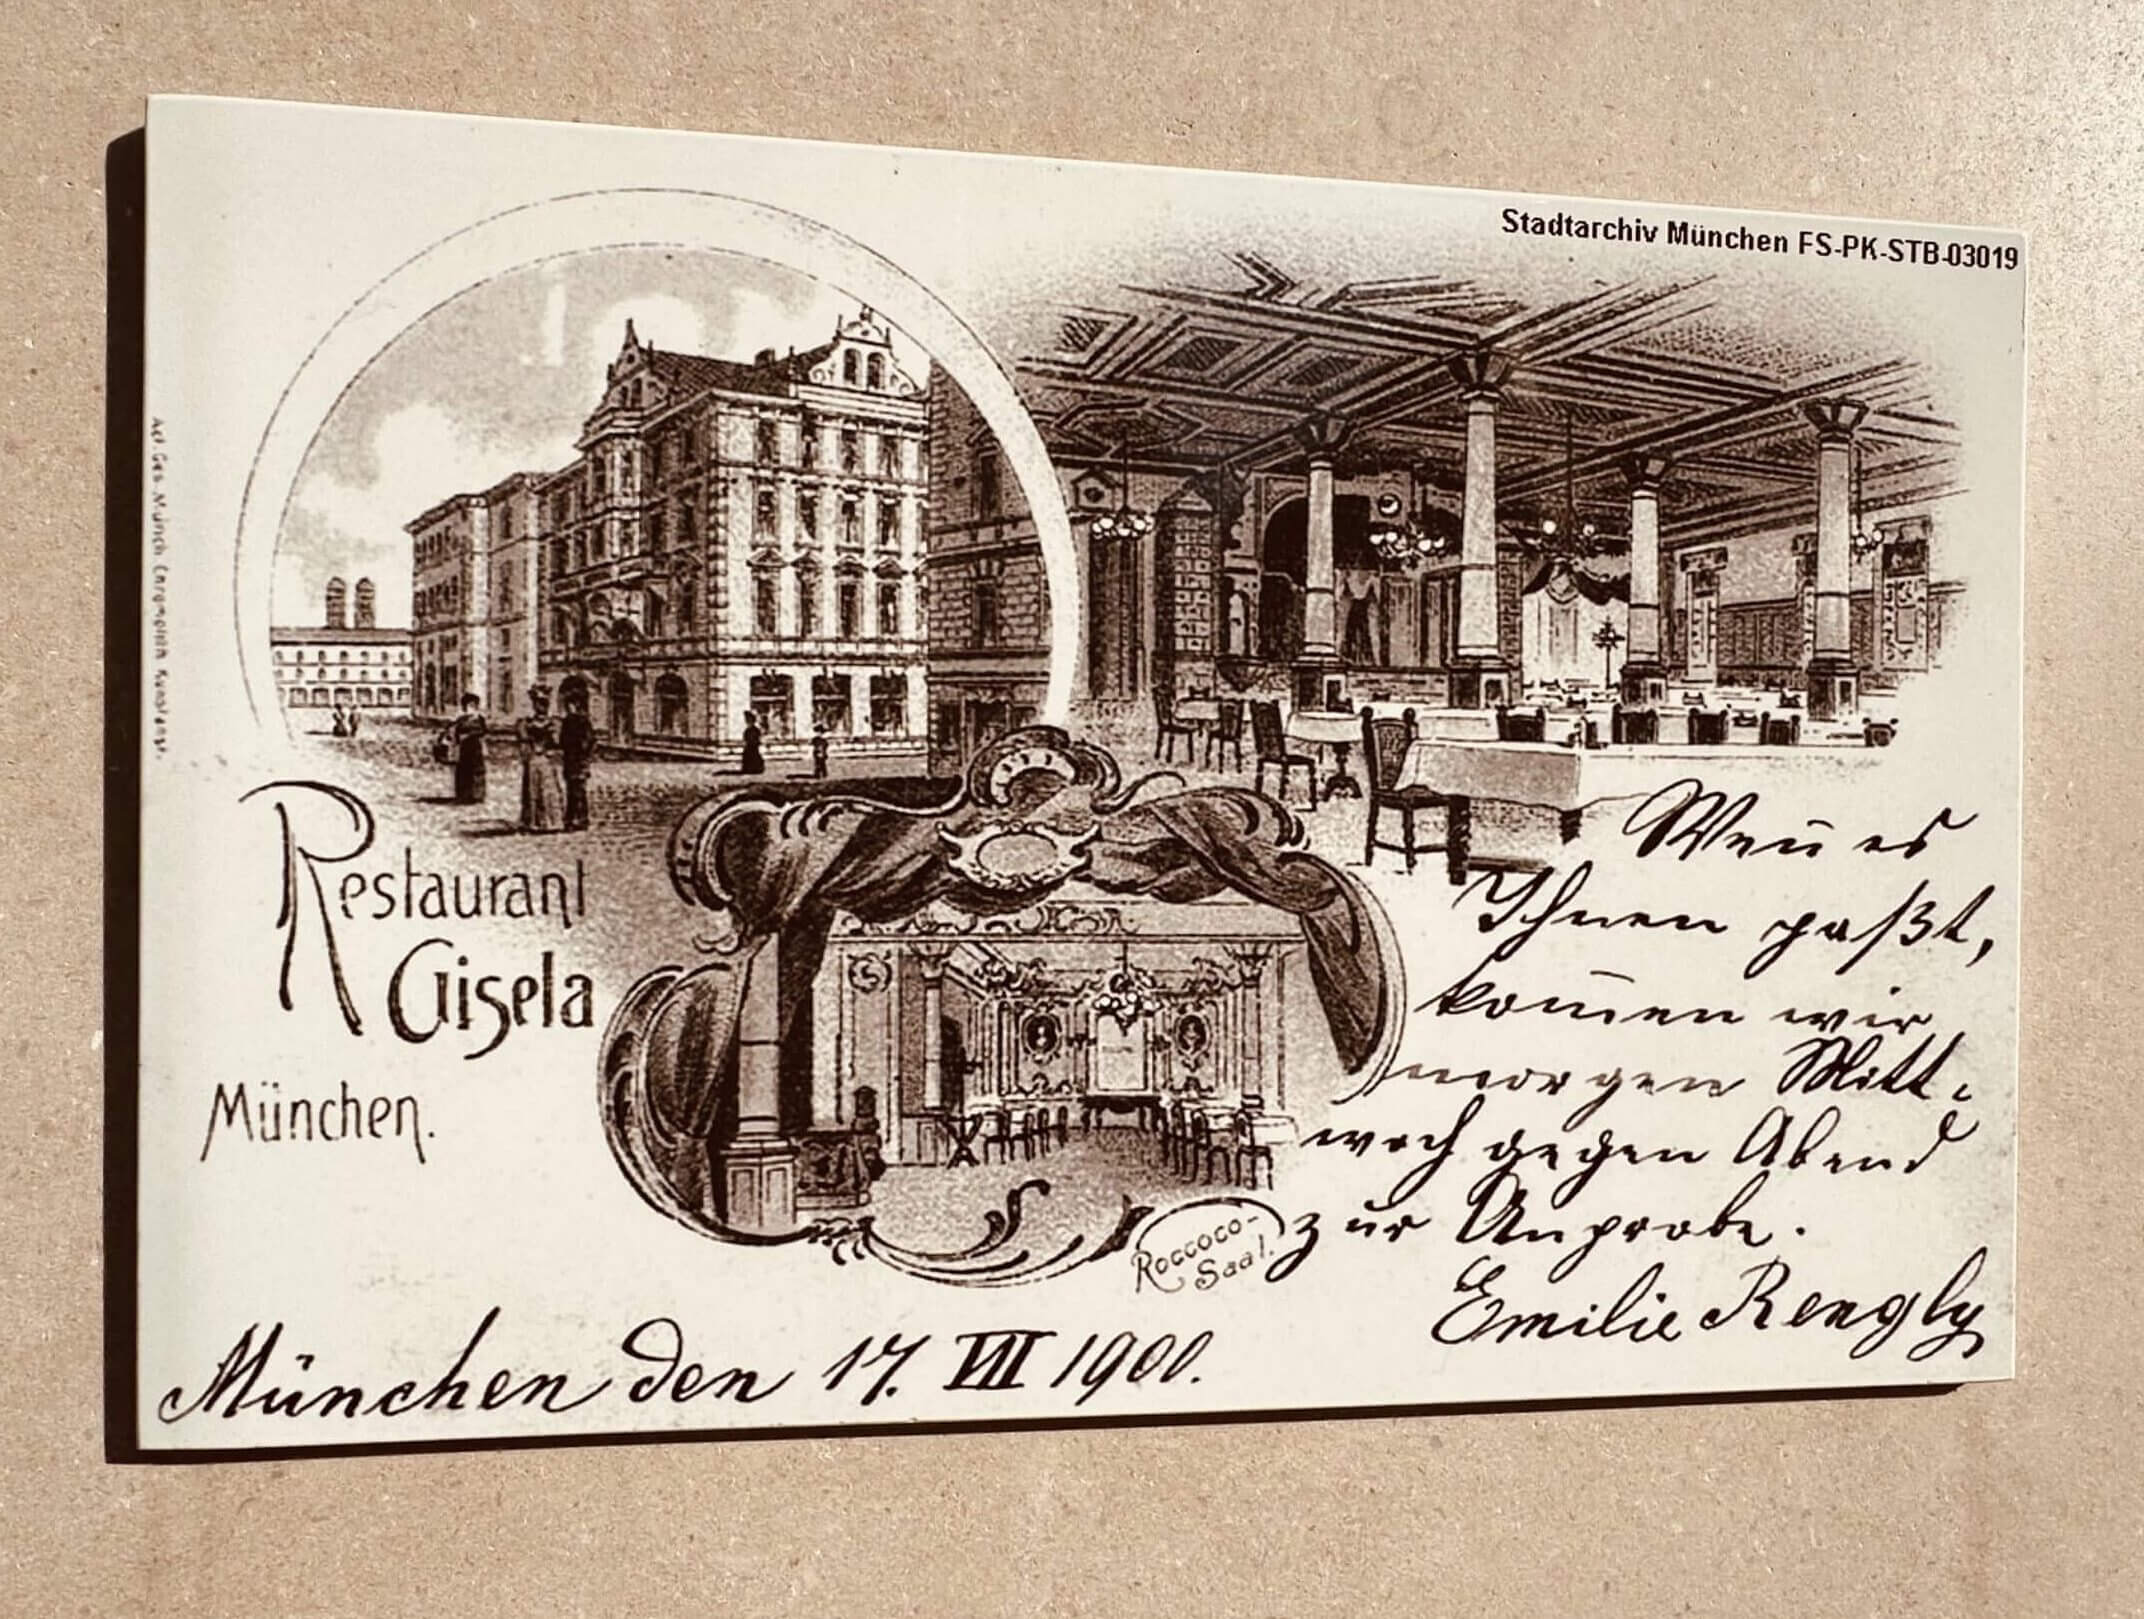 Stadtarchiv München FS-PK-STB-03019
Restaurant
Gisela
München.
Roccoco-
Saal.
Weñ es
Ihnen paßt,
kom̄en wir
morgen Mitt-
woch gegen Abend
zur Anprobe.
Emilie Rengly
München den 17. VII 1900.